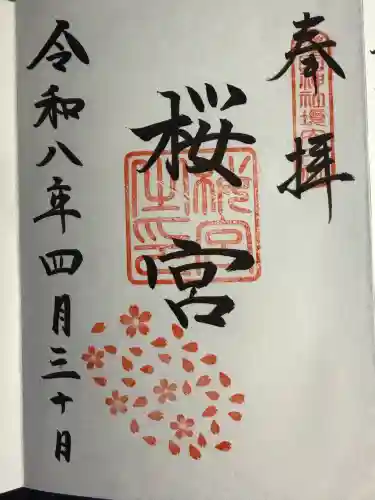 奉拝
桜宮
令和八年四月三十日